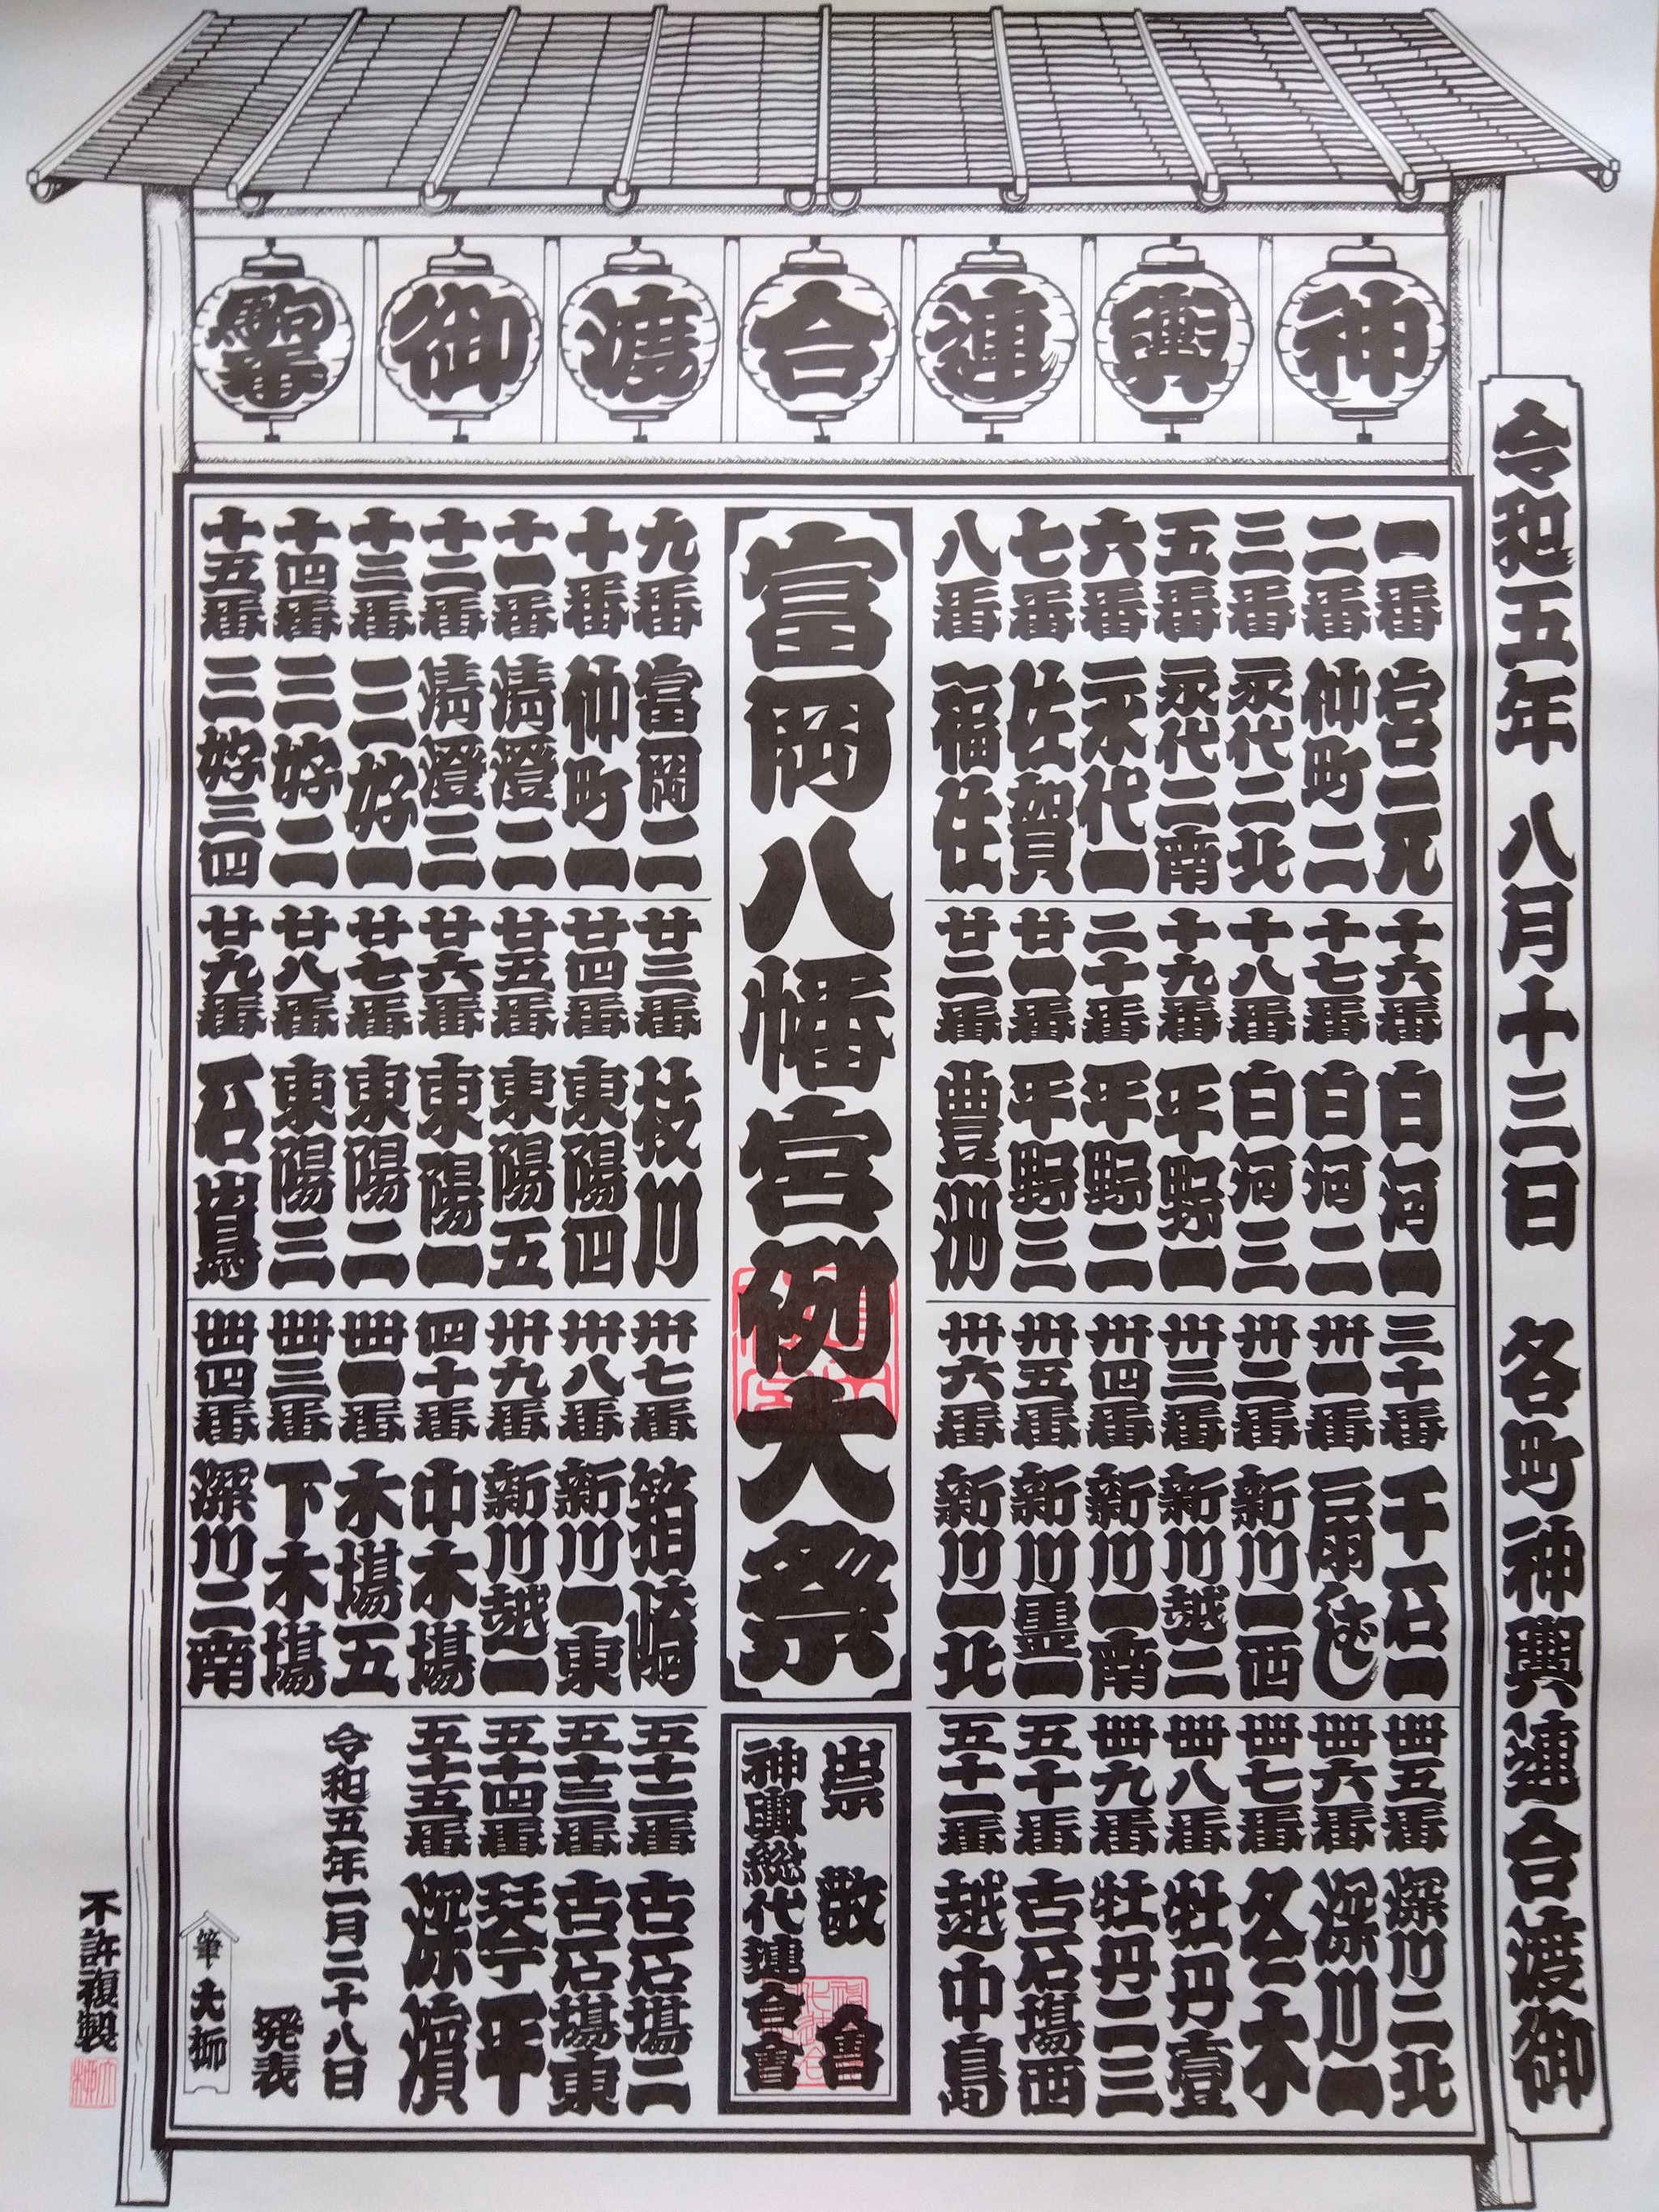 神輿連合渡御駒番
令和五年 八月十三日 各町神輿連合渡御
富岡八幡宮例大祭
崇敬會
神輿総代連合會
一番 宮元
二番 仲町二
三番 永代二北
五番 永代二南
六番 永代一
七番 佐賀
八番 福住
九番 富岡二
十番 仲町一
十一番 清澄二
十二番 清澄三
十三番 三好一
十四番 三好二
十五番 三好三四
十六番 白河一
十七番 白河二
十八番 白河三
十九番 平野一
二十番 平野二
廿一番 平野三
廿二番 豊洲
廿三番 枝川
廿四番 東陽四
廿五番 東陽五
廿六番 東陽一
廿七番 東陽二
廿八番 東陽三
廿九番 石島
三十番 千石一
卅一番 扇はし
卅二番 新川一西
卅三番 新川越二
卅四番 新川一南
卅五番 新川霊一
卅六番 新川一北
卅七番 箱崎
卅八番 新川一東
卅九番 新川越一
四十番 中木場
卌一番 木場五
卌三番 下木場
卌四番 深川二南
卌五番 深川二北
卌六番 深川一
卌七番 冬木
卌八番 牡丹壹
卌九番 牡丹二三
五十番 古石場西
五十一番 越中島
五十二番 古石場二
五十三番 古石場東
五十四番 琴平
五十五番 深濱
令和五年一月二十八日
発表
筆 大栁
不許複製